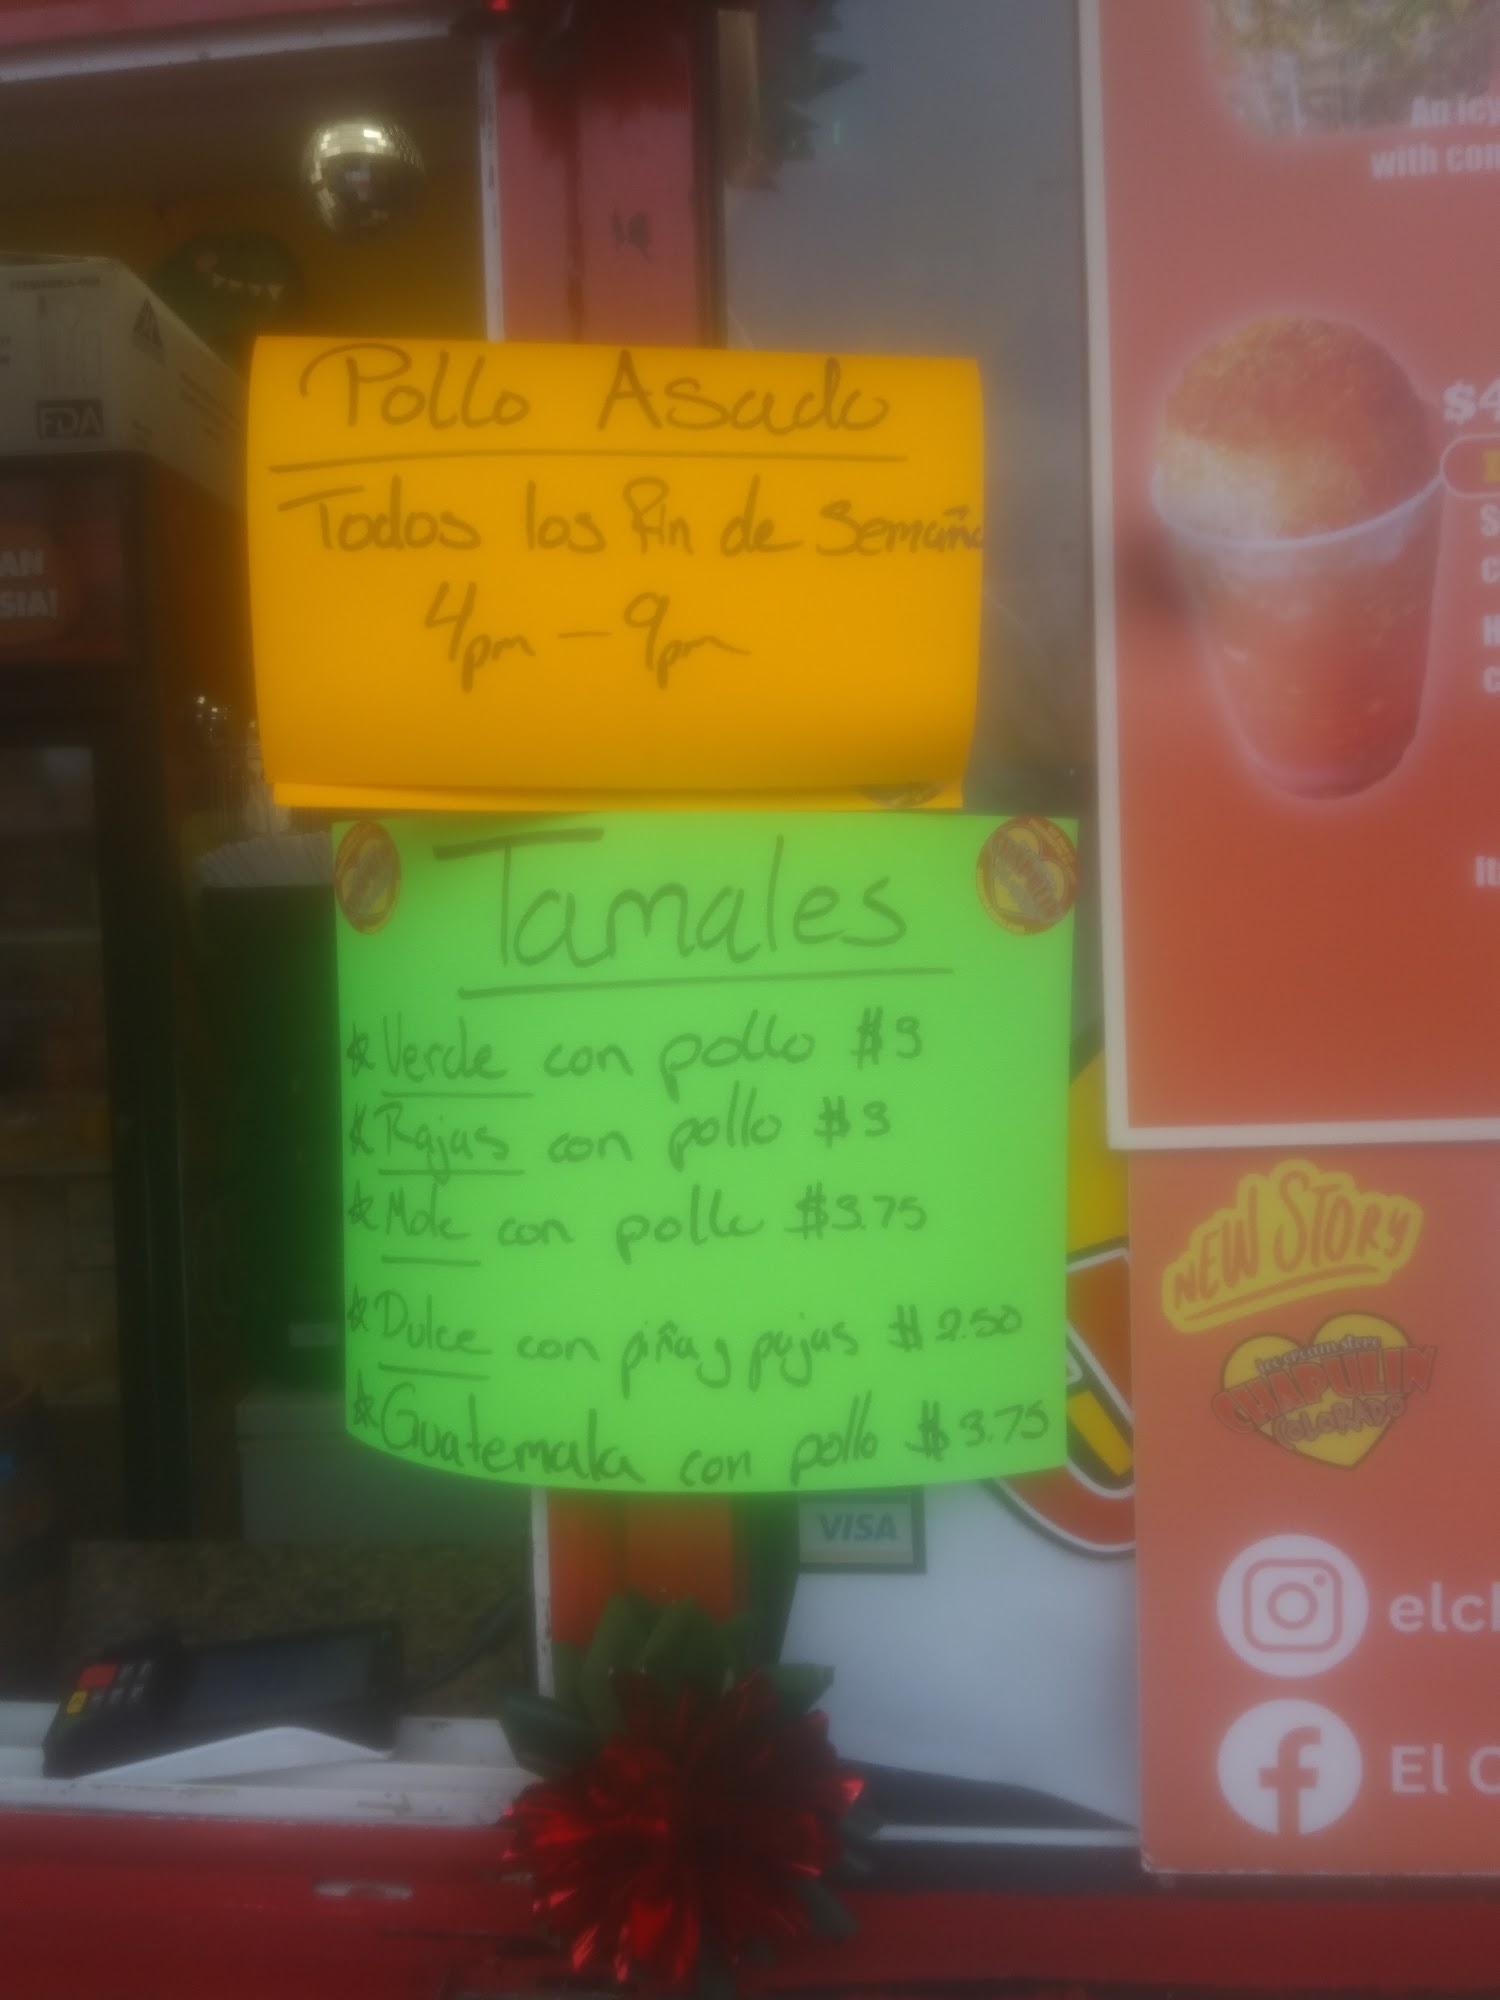 Pollo Asado
Todos los Fin de Semaña
4pm - 9pm
Tamales
☆ Verde con pollo $3
☆ Rajas con pollo $3
☆ Mole con pollo $3.75
☆ Dulce con piña y pajas $2.50
☆ Guatemala con pollo $3.75
VISA
FDA
AN
SIA!
An icy
with con
$4
NEW STORY
ice cream store
CHAPULIN
COLORADO
elch
El C